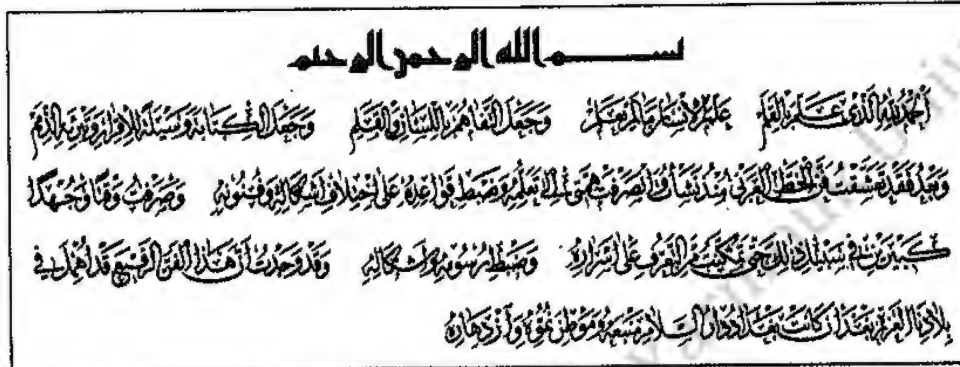 بسم الله الرحمن الرحيم
الحمد لله الذي علم بالقلم علم الانسان ما لم يعلم وجعل التفاهم باللسان والقلم وجعل الكتابة وسيلة للإقرار وتبرئة الذمم
وبعد فقد تعشقت فن الخط العربي منذ نشأتي وانصرفت همتي الى تعلمه وضبط قواعده على اختلاف اشكاله وفنونه وصرفت وقتا وجهدا
كبيرين في سبيل ذلك حتى تمكنت من التعرف على أسراره وضبط رسومه وأشكاله وقد وجدت أن هذا الفن الرفيع قد أهمل في
بلادنا العربية بعد ان كانت بغداد دار السلام منبعه وموطن نموه وازدهاره